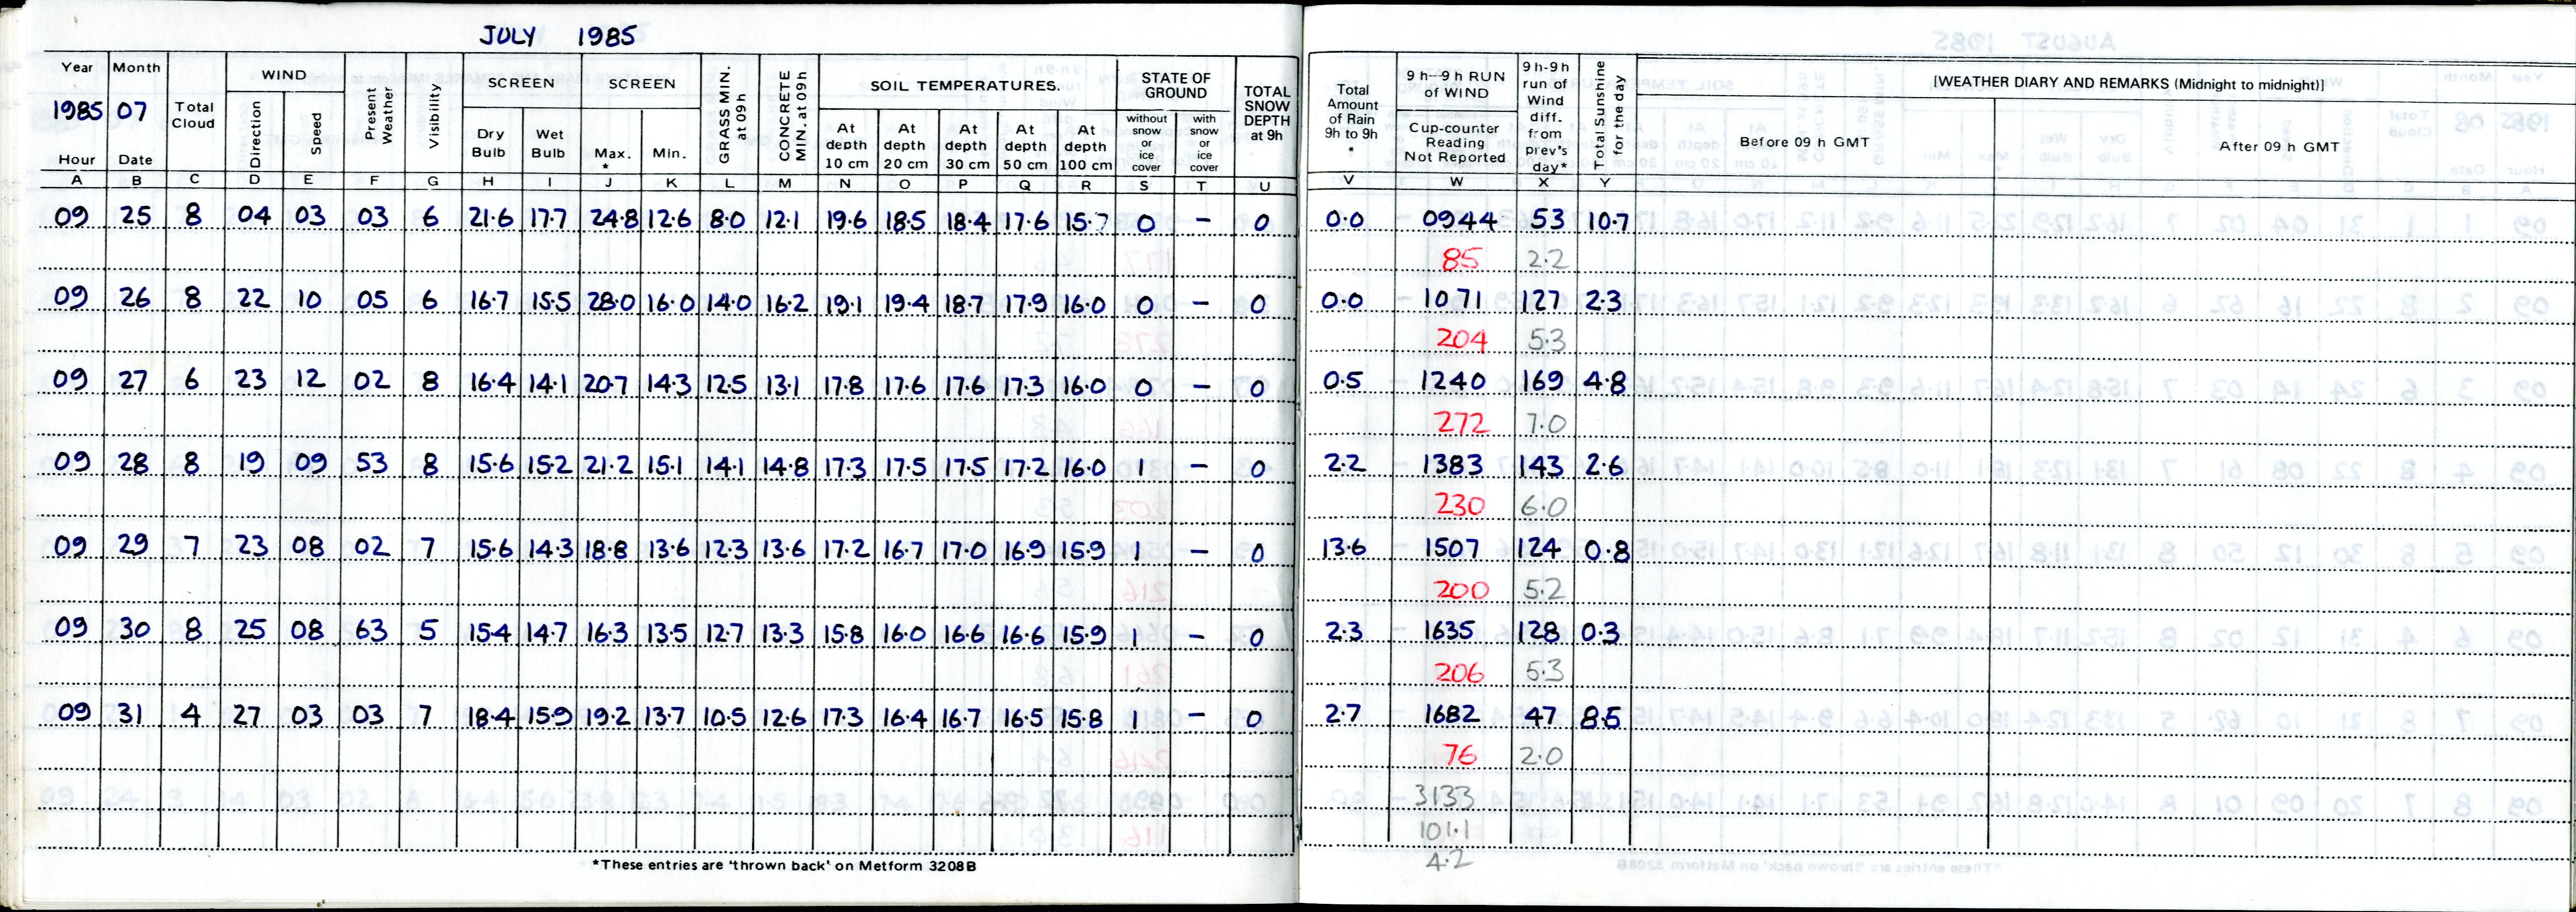 JULY 1985
Year Month Total Cloud WIND Direction Speed Present Weather Visibility SCREEN Dry Bulb Wet Bulb SCREEN Max. * Min. GRASS MIN. at 09h CONCRETE MIN. at 09h SOIL TEMPERATURES. At depth 10 cm At depth 20 cm At depth 30 cm At depth 50 cm At depth 100 cm STATE OF GROUND without snow or ice cover with snow or ice cover TOTAL SNOW DEPTH at 9h Total Amount of Rain 9h to 9h * 9h–9h RUN of WIND Cup-counter Reading Not Reported 9h-9h run of Wind diff. from prev's day* Total Sunshine for the day [WEATHER DIARY AND REMARKS (Midnight to midnight)] Before 09 h GMT After 09 h GMT
1985 07
Hour Date
A B C D E F G H I J K L M N O P Q R S T U V W X Y
09 25 8 04 03 03 6 21.6 17.7 24.8 12.6 8.0 12.1 19.6 18.5 18.4 17.6 15.7 0 – 0 0.0 0944 53 10.7
85 2.2
09 26 8 22 10 05 6 16.7 15.5 28.0 16.0 14.0 16.2 19.1 19.4 18.7 17.9 16.0 0 – 0 0.0 1071 127 2.3
204 5.3
09 27 6 23 12 02 8 16.4 14.1 20.7 14.3 12.5 13.1 17.8 17.6 17.6 17.3 16.0 0 – 0 0.5 1240 169 4.8
272 7.0
09 28 8 19 09 53 8 15.6 15.2 21.2 15.1 14.1 14.8 17.3 17.5 17.5 17.2 16.0 1 – 0 2.2 1383 143 2.6
230 6.0
09 29 7 23 08 02 7 15.6 14.3 18.8 13.6 12.3 13.6 17.2 16.7 17.0 16.9 15.9 1 – 0 13.6 1507 124 0.8
200 5.2
09 30 8 25 08 63 5 15.4 14.7 16.3 13.5 12.7 13.3 15.8 16.0 16.6 16.6 15.9 1 – 0 2.3 1635 128 0.3
206 5.3
09 31 4 27 03 03 7 18.4 15.9 19.2 13.7 10.5 12.6 17.3 16.4 16.7 16.5 15.8 1 – 0 2.7 1682 47 8.5
76 2.0
3133
101.1
4.2
*These entries are 'thrown back' on Metform 3208B